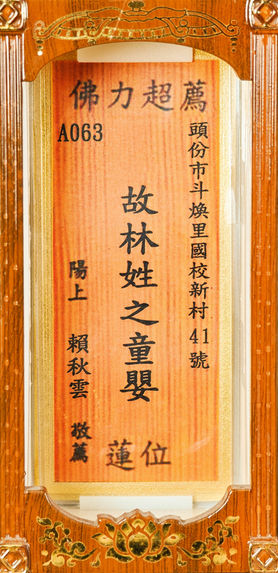 佛力超薦
A063
頭份市斗煥里國校新村41號
故林姓之童嬰
蓮位
陽上 賴秋雲 敬薦